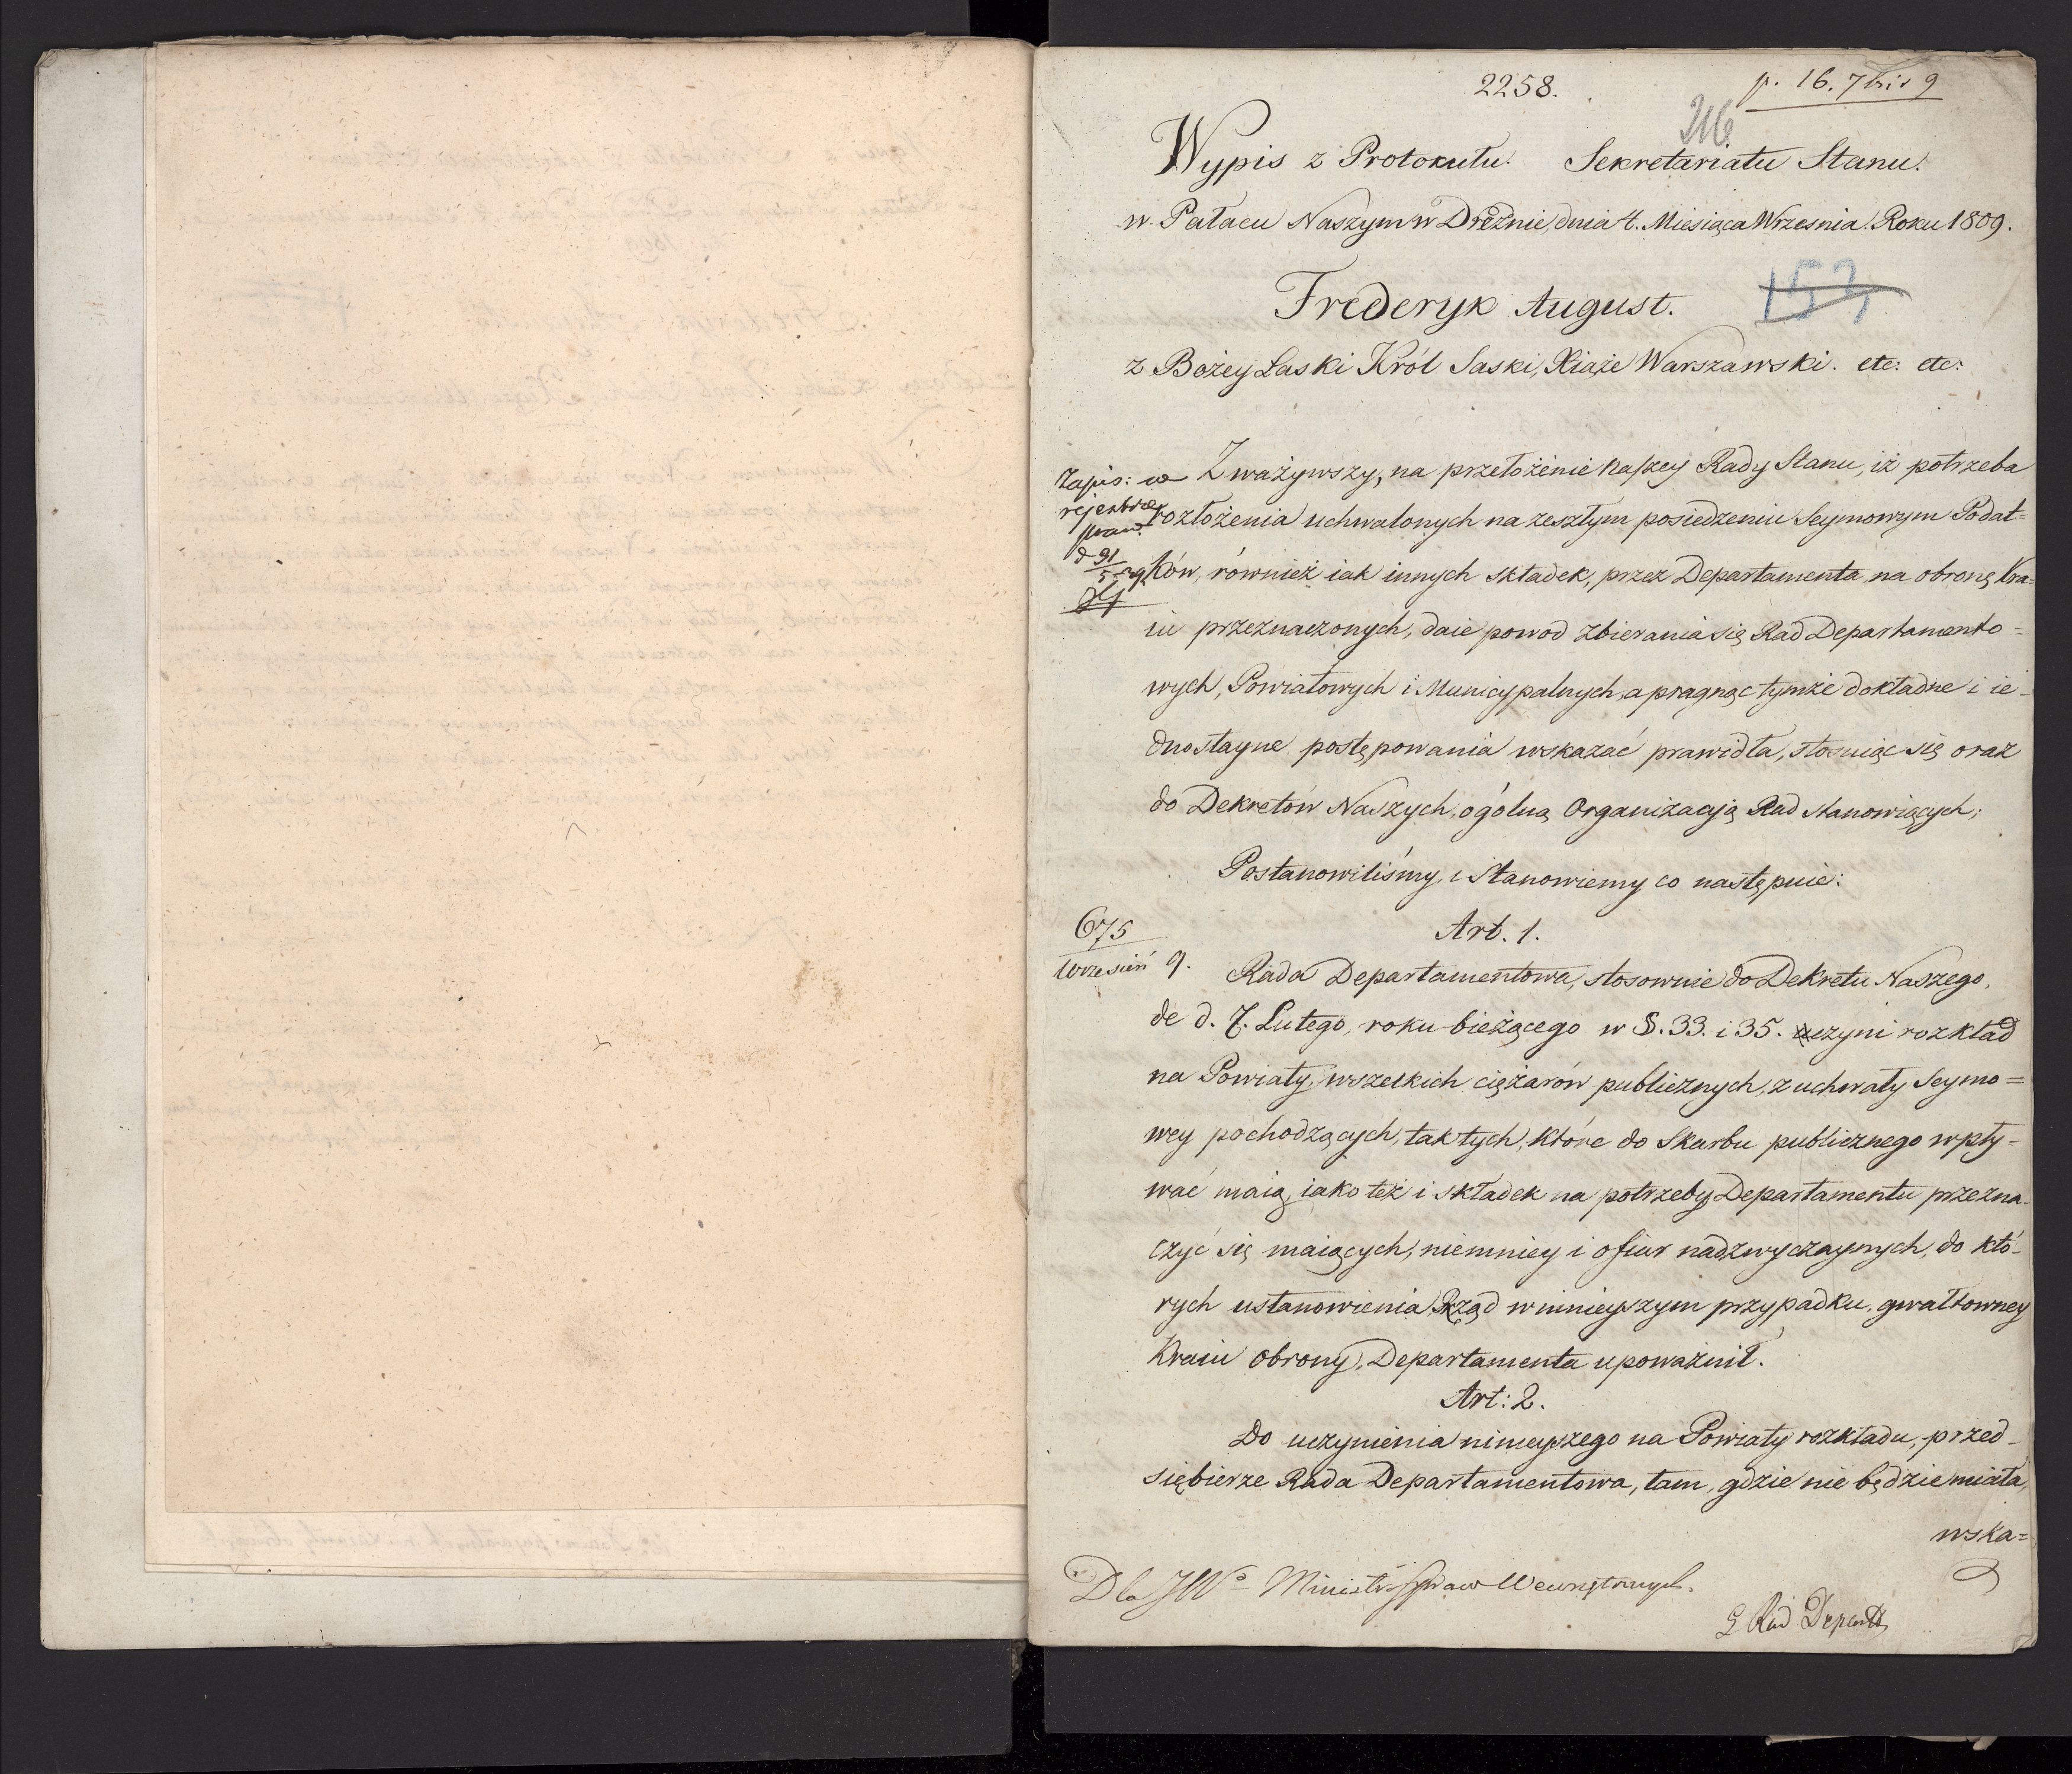 2258.
p. 16. 7bis 9
216
Wypis z Protokułu Sekretariatu Stanu.
w Pałacu Naszym w Dreźnie, dnia 4. Miesiąca Wrzesnia. Roku 1809.
Frederyk August.
153
z Bożey Łaski Król Saski, Xiąże Warszawski. etc: etc:
Zapis: w
rejestrze
praw.
Zważywszy, na przełożenie naszey Rady Stanu, iż potrzeba
rozłożenia uchwalonych na zeszłym posiedzeniu Seymowym Podat=
ków, również iak innych składek, przez Departamenta na obronę Kra=
iu przeznaczonych, daie powod zbierania się Rad Departamento=
wych, Powiatowych i Municypalnych, a pragnąc tymże dokładne i ie-
dnostayne postępowania wskazać prawidła, stosuiąc się oraz
do Dekretów Naszych, ogólną Organizacyą Rad stanowiących;
Postanowiliśmy, i Stanowiemy co następuie:
675
Wrzesień 9.
Art. 1.
Rada Departamentowa, stosownie do Dekretu Naszego,
de d. 7. Lutego, roku bieżącego w §. 33. i 35. uczyni rozkład
na Powiaty, wszelkich ciężarów publicznych, z uchwały Seymo=
wey pochodzących, tak tych, które do Skarbu publicznego wpły=
wać maią, iako też i składek na potrzeby Departamentu przezna-
czyć się maiących, niemniey i ofiar nadzwyczaynych, do któ-
rych ustanowienia Rząd w ninieyszym przypadku, gwałtowney
Kraiu obrony, Departamenta upoważnił.
Art: 2.
Do uczynienia ninieyszego na Powiaty rozkładu, przed-
siębierze Rada Departamentowa, tam, gdzie nie będzie miała,
wska=
Dla JWo Ministr Spraw Wewnętrznych.
Rad Depart